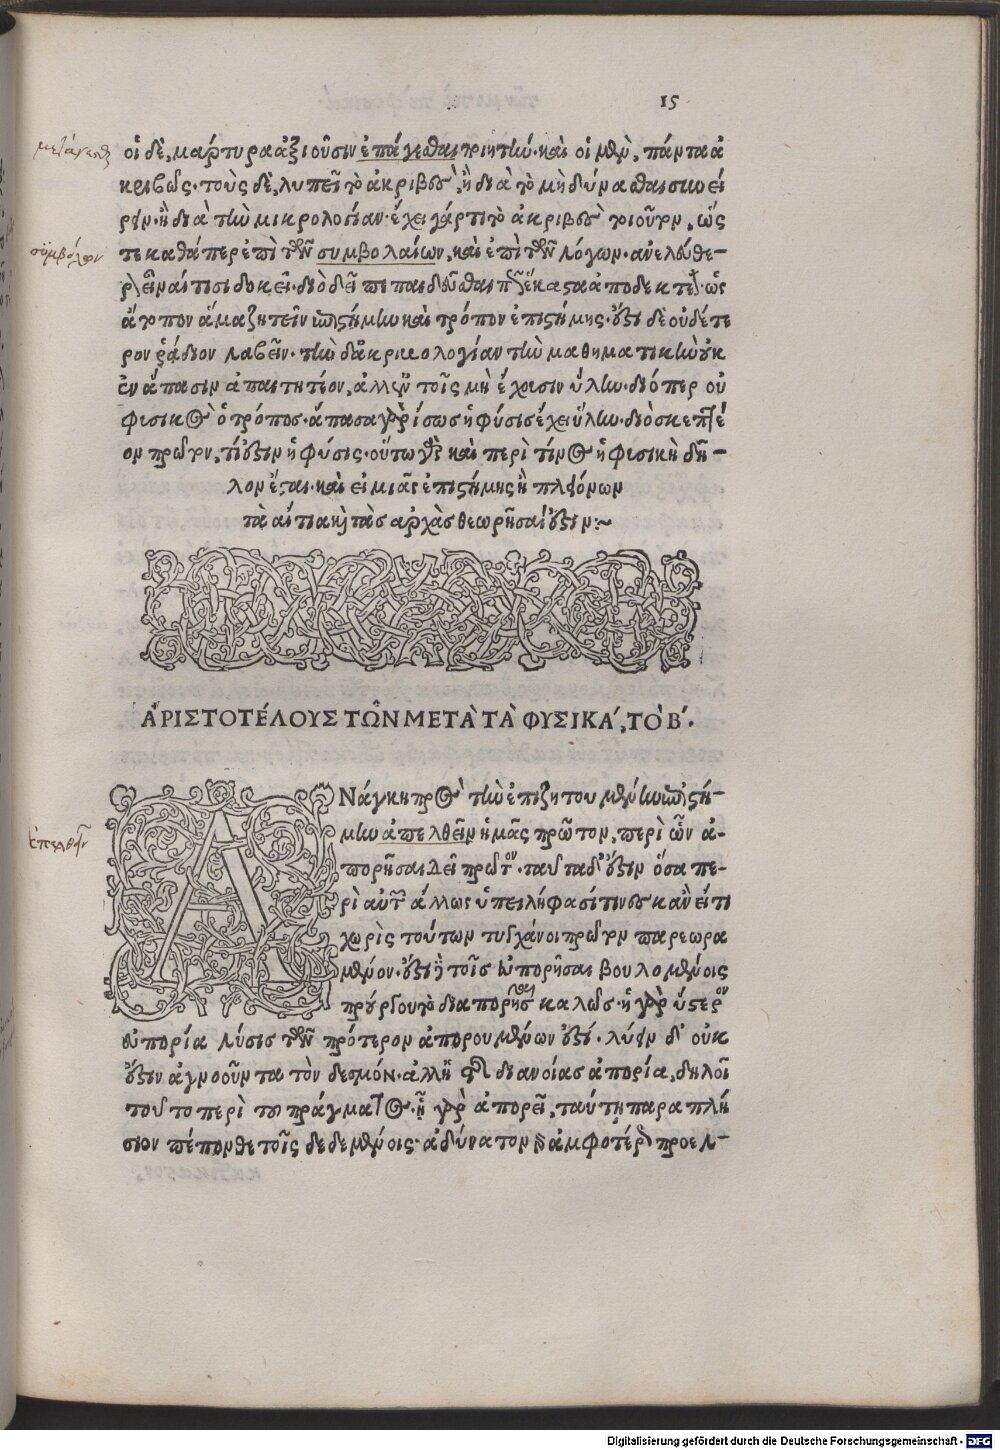 15
οἱ δὲ, μαρτυρα ἀξιοῦσιν ἐπάγεσθαι ποιητὴν· καὶ οἱ μὲν, πάντα ἀ
κριβῶς· τοὺς δὲ, λυπεῖ τὸ ἀκριβὲς, ἢ διὰ τὸ μὴ δύνασθαι συνεί
ρειν· ἢ διὰ τὴν μικρολογίαν· ἔχει γάρ τι τὸ ἀκριβὲς τοιοῦτον, ὥς
τε καθάπερ ἐπὶ τῶν συμβολαίων, καὶ ἐπὶ τῶν λόγων· ἀνελεύθε-
ρον εἶναί τισι δοκεῖ· διὸ δεῖ πεπαιδεῦσθαι πῶς ἕκαστα ἀποδεκτέον· ὡς
ἄτοπον ἅμα ζητεῖν ἐπιστήμην καὶ τρόπον ἐπιστήμης· ἔστι δὲ οὐδέτε
ρον ῥάδιον λαβεῖν· τὴν δ' ἀκριβολογίαν τὴν μαθηματικὴν οὐκ
ἐν ἅπασιν ἀπαιτητέον, ἀλλ' ἐν τοῖς μὴ ἔχουσιν ὕλην· διόπερ οὐ
φυσικὸς ὁ τρόπος· ἅπασα γὰρ ἴσως ἡ φύσις ἔχει ὕλην· διὸ σκεπτέ
ον πρῶτον, τί ἐστιν ἡ φύσις· οὕτω γὰρ καὶ περὶ τίνος ἡ φυσικὴ δῆ-
λον ἔσται· καὶ εἰ μιᾶς ἐπιστήμης ἢ πλειόνων
τὰ αἴτια καὶ τὰς ἀρχὰς θεωρῆσαί ἐστιν:~
ἈΡΙΣΤΟΤΈΛΟΥΣ ΤΩ͂Ν ΜΕΤᾺ ΤᾺ ΦΥΣΙΚΆ, ΤῸ Β´.
ἈΝάγκη πρὸς τὴν ἐπιζητουμένην ἐπιστή-
μην ἀπελθεῖν ἡμᾶς πρῶτον, περὶ ὧν ἀ-
πορῆσαι δεῖ πρῶτον· ταῦτα δ' ἐστὶν ὅσα πε-
ρὶ αὐτῶν ἄλλως ὑπειλήφασί τινες· κἂν εἴ τι
χωρὶς τούτων τυγχάνοι πρῶτον παρεωρα
μένον· ἔστι δὲ τοῖς εὐπορῆσαι βουλομένοις
πρύργου τὸ διαπορῆσαι καλῶς· ἡ γὰρ ὕστερον
εὐπορία λύσις τῶν πρότερον ἀπορουμένων ἐστί· λύειν δ' οὐκ
ἔστιν ἀγνοοῦντα τὸν δεσμόν· ἀλλ' ἡ τῆς διανοίας ἀπορία, δηλοῖ
τοῦτο περὶ τοῦ πράγματος· ᾗ γὰρ ἀπορεῖ, ταύτῃ παραπλή
σιον πέπονθε τοῖς δεδεμένοις· ἀδύνατον γὰρ ἀμφοτέρως προελ-